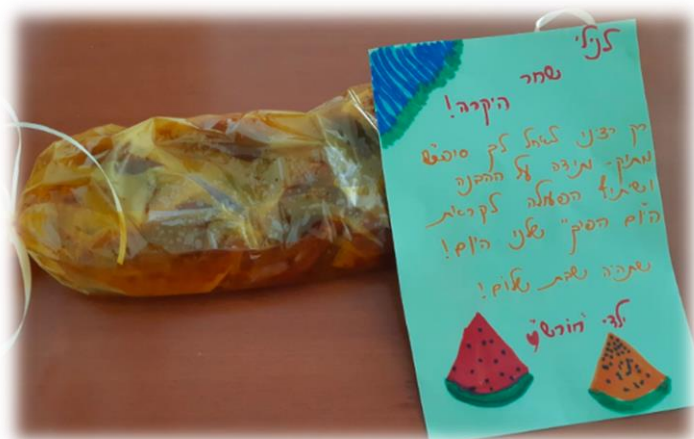 לנילי
שחר
היקרה!
רק רצינו לאחל לך סופ"ש
מתוק. תודה על ההבנה
ושיתוף הפעולה לקראת
ה"יום הפיק" שלנו היום!
שתהיה שבת שלום!
ילדי "חורש"